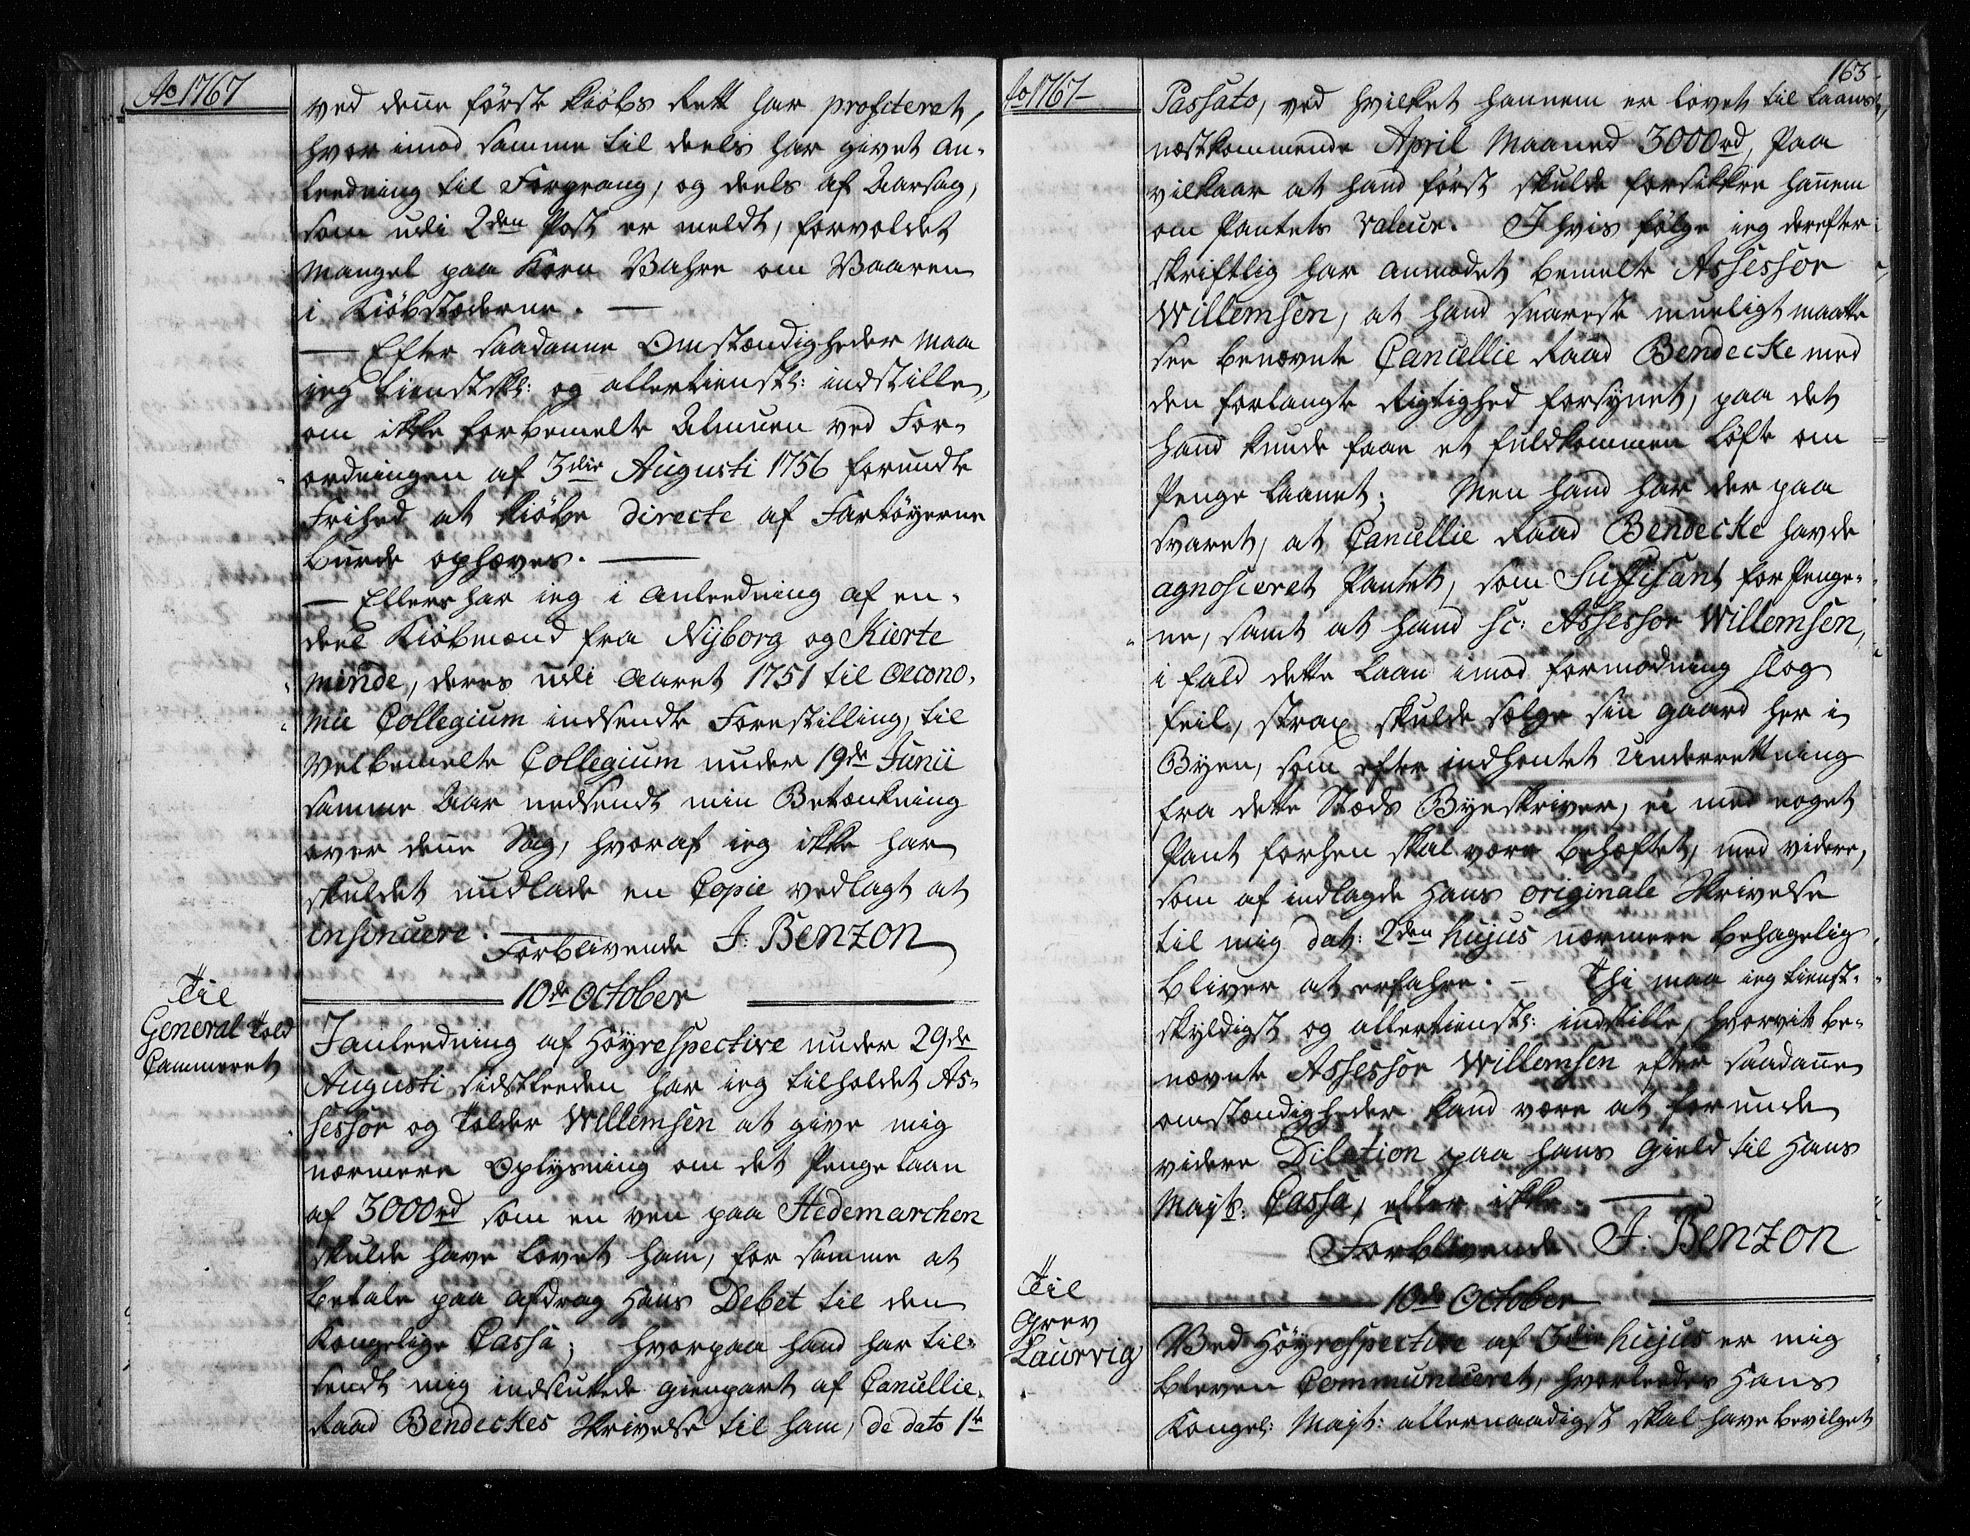 Ao 1767
ved denne første Kiøbs Rett har profiteret,
hvor imod samme til deels har givet An-
leedning til Forprang, og deels af Aarsag,
som udi 2den Post er meldt, forvoldet
Mangel paa Korn Vahre om Vaaren
i Kiøbstæderne. —
— Efter saadanne Omstændigheder maa
jeg tienstskl: og allertienstl: indstille,
om ikke forbemelte Almuen ved For-
ordningen af 3die Augusti 1756 forundte
Frihed at kiøbe directe af Fartøyerne
burde ophæves. —
— Ellers har jeg i Anleedning af en-
deel Kiøbmænd fra Nyborg og Kierte
minde, deres udi Aaret 1751 til Oecono-
mie Collegium indsendte Forestilling, til
Velbemelte Collegium under 19de Junii
samme Aar nedsendt min Betænkning
over denne Sag, hvoraf jeg ikke har
skuldet undlade en Copie vedlagt at
insinuere. —
Forblivende J: Benzon
10de October
Til
General Told
Cammeret
I anleedning af Høyrespective under 29de
Augusti sidstleeden har jeg tilholdet As-
sessor og Tolder Willemsen at give mig
nærmere Oplysning om det Penge Laan
af 3000 rd som en ven paa Hedemarchen
skulde have lovet ham, for samme at
betale paa afdrag hans Debet til den
Kongelige Cassa; hvorpaa hand har til-
sendt mig indsluttede gienpart af Cancellie-
Raad Bendeckes Skrivelse til ham, de dato 1te
Ao 1767
163
Passato, ved hvilket hannem er lovet til Laans
næstkommende April Maaned 3000 rd, paa
vilkaar at hand først skulde forsikkre hannem
om Pantets valeur. I hvis følge jeg derefter
skriftlig har anmodet bemelte Assessor
Willemsen, at hand snareste mueligt maatte
see benævnte Cancellie Raad Bendecke med
den forlangte Rigtighed forsynet, paa det
hand kunde faae et fuldkommen Løfte om
Penge Laanet; Men hand har der paa
svaret, at Cancellie Raad Bendecke havde
agnosceret Pantet, som Suffisant for Penge-
ne, samt at hand sc: Assessor Willemsen,
i fald dette Laan imod formodning slog
feil, strax skulde sælge sin gaard her i
Byen, som efter indhentet Underrettning
fra dette Stæds Byeskriver, ei med noget
Pant forhen skal være behæftet, med videre,
som af indlagde hans originale Skrivelse
til mig dat: 2den hujus nærmere behagelig
bliver at erfahre. — Thi maa jeg tienst-
skyldigst og allertienstl: indstille, hvorvit be-
nævnte Assessor Willemsen efter saadanne
omstændigheder kand være at forunde
videre Dilation paa hans Gield til Hans
Majts: Cassa, eller ikke. —
Forblivende J. Benzon
10de October
Til
Grev
Laurvig
Ved Høyrespective af 3die hujus er mig
bleven Communiceret, hvorleedes Hans
Kongel: Majt: allernaadigst skal have bevilget